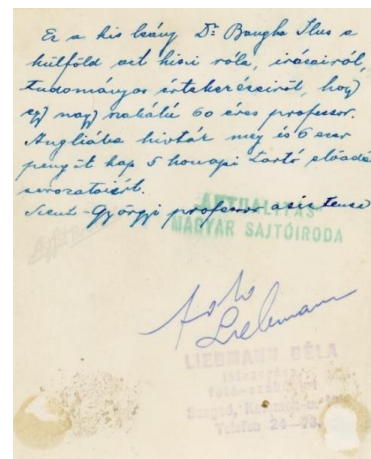 Ez a kis leány Dr Banga Ilus a
külföld azt hiszi róla, irásairól,
tudományos értekezéseiről, hogy
egy nagy szakálú 60 éves professor.
Angliába hivták meg és 6 ezer
pengőt kap 5 honapi tartó előadás
sorozataiért.
Szent-Györgyi professor asistense
AKTUALITÁS
MAGYAR SAJTÓIRODA
foto
Liebmann
LIEBMANN BÉLA
Szeged,
Telefon 24-78.